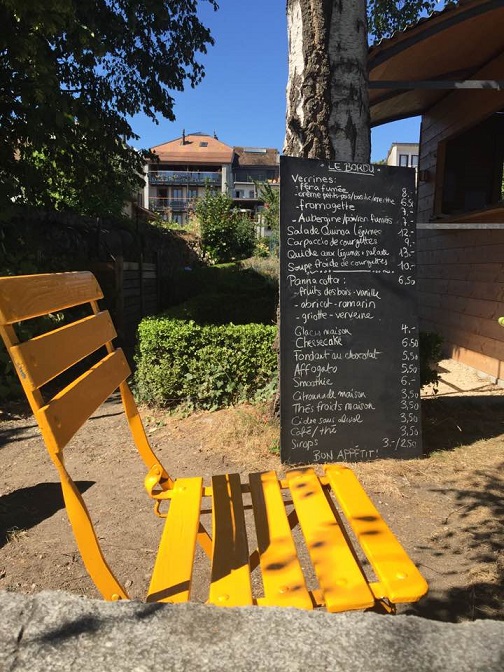 - LE BORDU -
Verrines:
- féra fumée 8.-
- crème petits-pois/basilic/menthe 6.50
- fromagette 7.-
- Aubergine/poivron fumés - 7.-
Salade Quinoa légumes 12.-
Carpaccio de courgettes 9.-
Quiche aux légumes + salade 13.-
Soupe froide de courgettes 10.-
Panna cotta: 6,50
- fruits des bois - vanille
- abricot - romarin
- griotte - verveine
Glaces maison 4.-
Cheesecake 6.50
Fondant au chocolat 5,50
Affogato 5,50
Smoothie 6.-
Citronnade maison 3,50
Thés froids maison 3,50
Cidre sans alcool 3,50
Café/thé 3,50
Sirops 3.-/2,50
BON APPÉTIT!